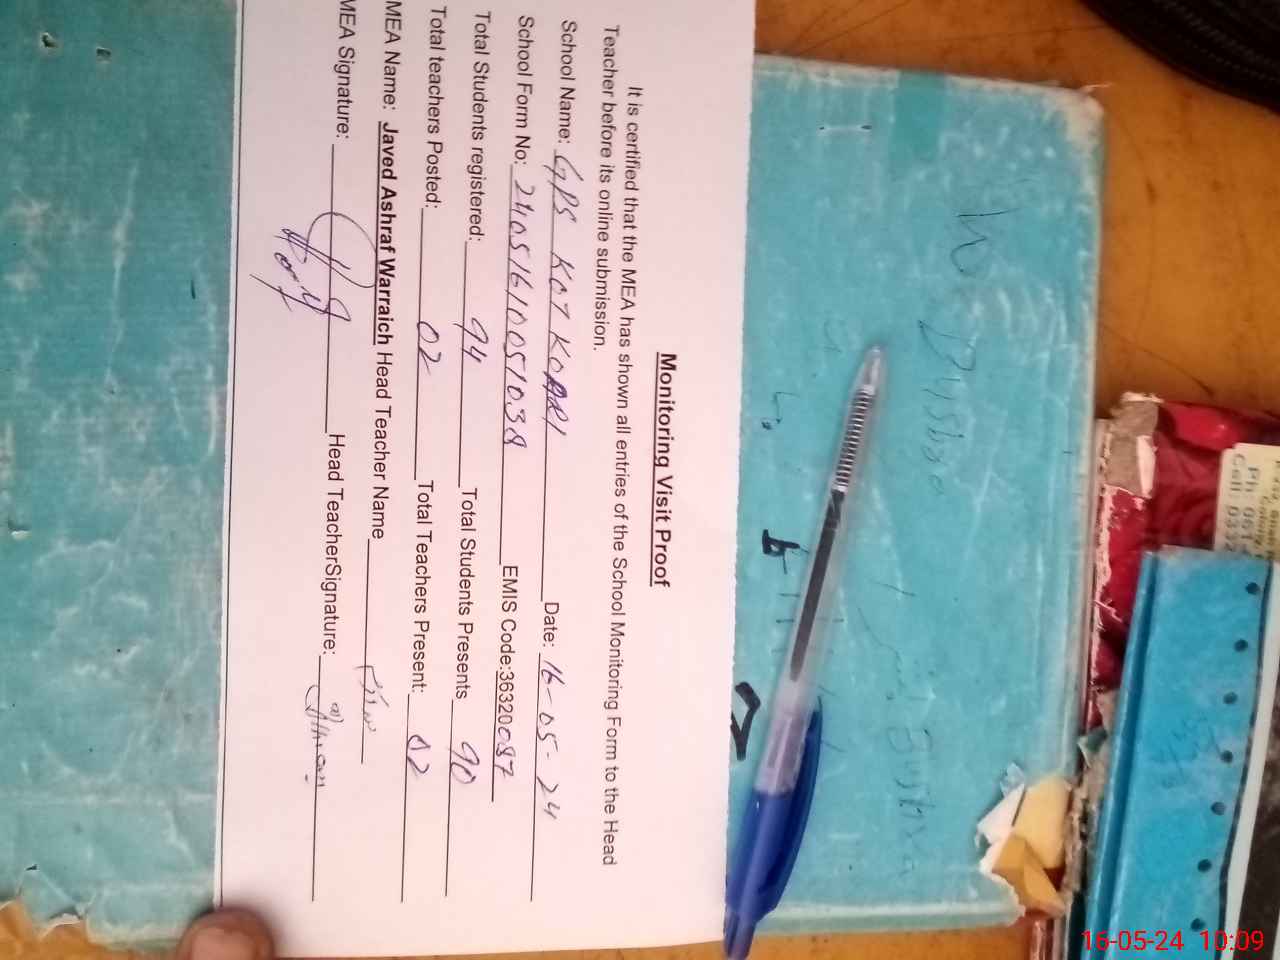 Monitoring Visit Proof
It is certified that the MEA has shown all entries of the School Monitoring Form to the Head
Teacher before its online submission.
School Name: GPS KOT KORRI Date: 16-05-24
School Form No: 24051610051038 EMIS Code:36320087
Total Students registered: 94 Total Students Presents 90
Total teachers Posted: 02 Total Teachers Present: 02
MEA Name: Javed Ashraf Warraich Head Teacher Name
MEA Signature: Head TeacherSignature:
16-05-24 10:09